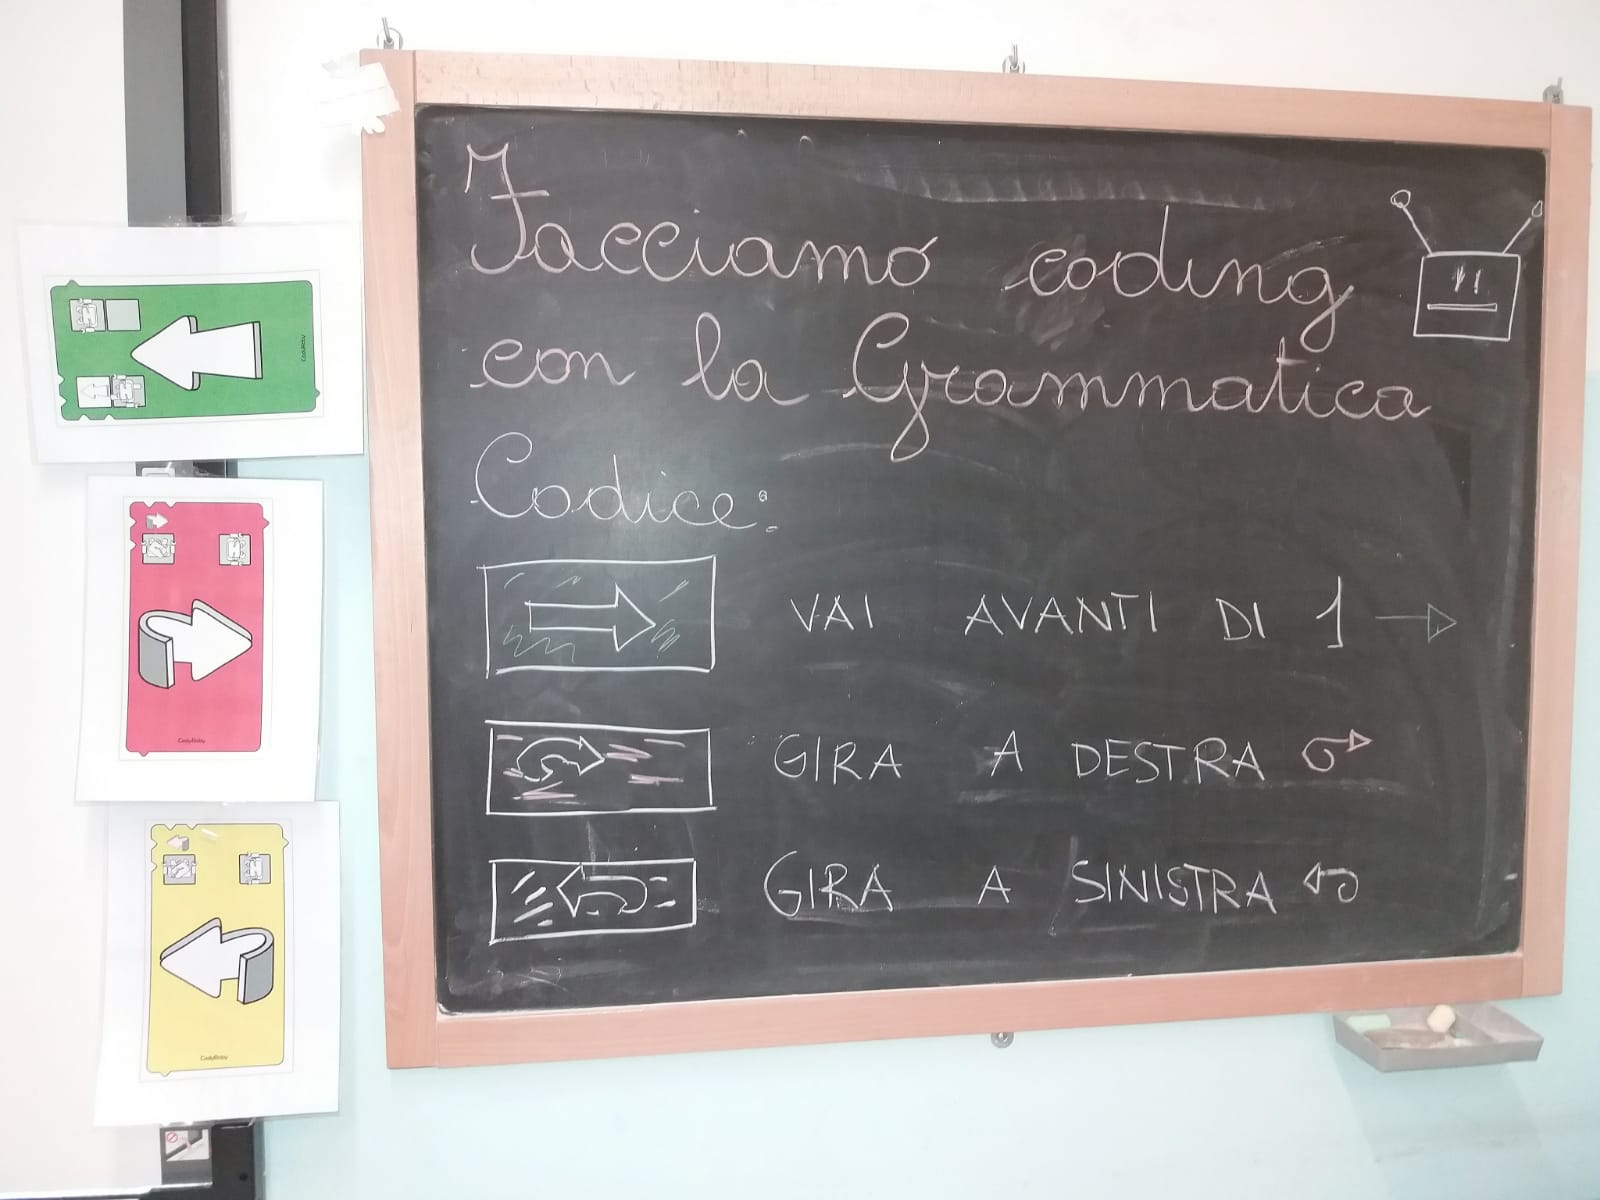 Facciamo coding
con la Grammatica
Codice:
VAI AVANTI DI 1
GIRA A DESTRA
GIRA A SINISTRA
CodyRoby
CodyRoby
CodyRoby